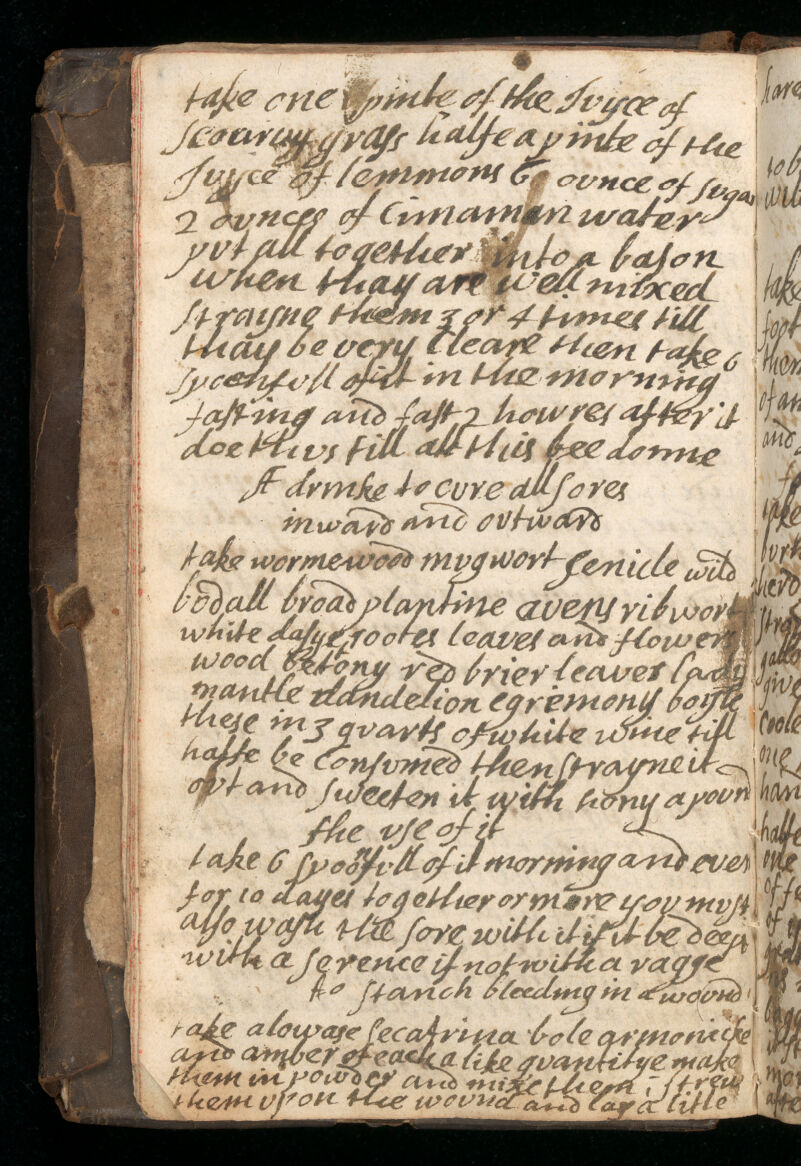 take one pinte of the Ivyce of
scourvy grass halfe a pinte of the
Ivyce of lemmons 6 ounce of sugar
2 ovnces of Cinaman water
pvt all together into a bason
when thay are well mixed
strayne them 3 or 4 times till
thay be very Cleare then take 6
spoonfvll of it in the morning
fasting and fast 2 howres after it
doe thvs till all this bee donne
A drinke to cvre all sores
inward and ovtward
take wormewood mvgwort senicle wild
bodall broad plantine avens ribwort
white dasye rootes leaves and flowers
wood Betony red brier leaves lady
mantle dandelion egremony boyle
these in 3 qvarts of white wine till
halfe be Consvmed then strayne it
ovt and sweeten it with hony a pound
the vse of it
take 6 spoonfvll of it morning and even
for 10 dayes together or more yov mvst
also wash the sore with it if it be deep
with a serence if not with a ragge
to stanch bleeding in a wovnd
take alowase secatrina bole armonicke
and amber of each a like qvantitye make
them in powder and mixe them strew
them vpon the wovnd and lay a litle
hare
take
them
of an
and
take
give
Coole
one
halfe
one